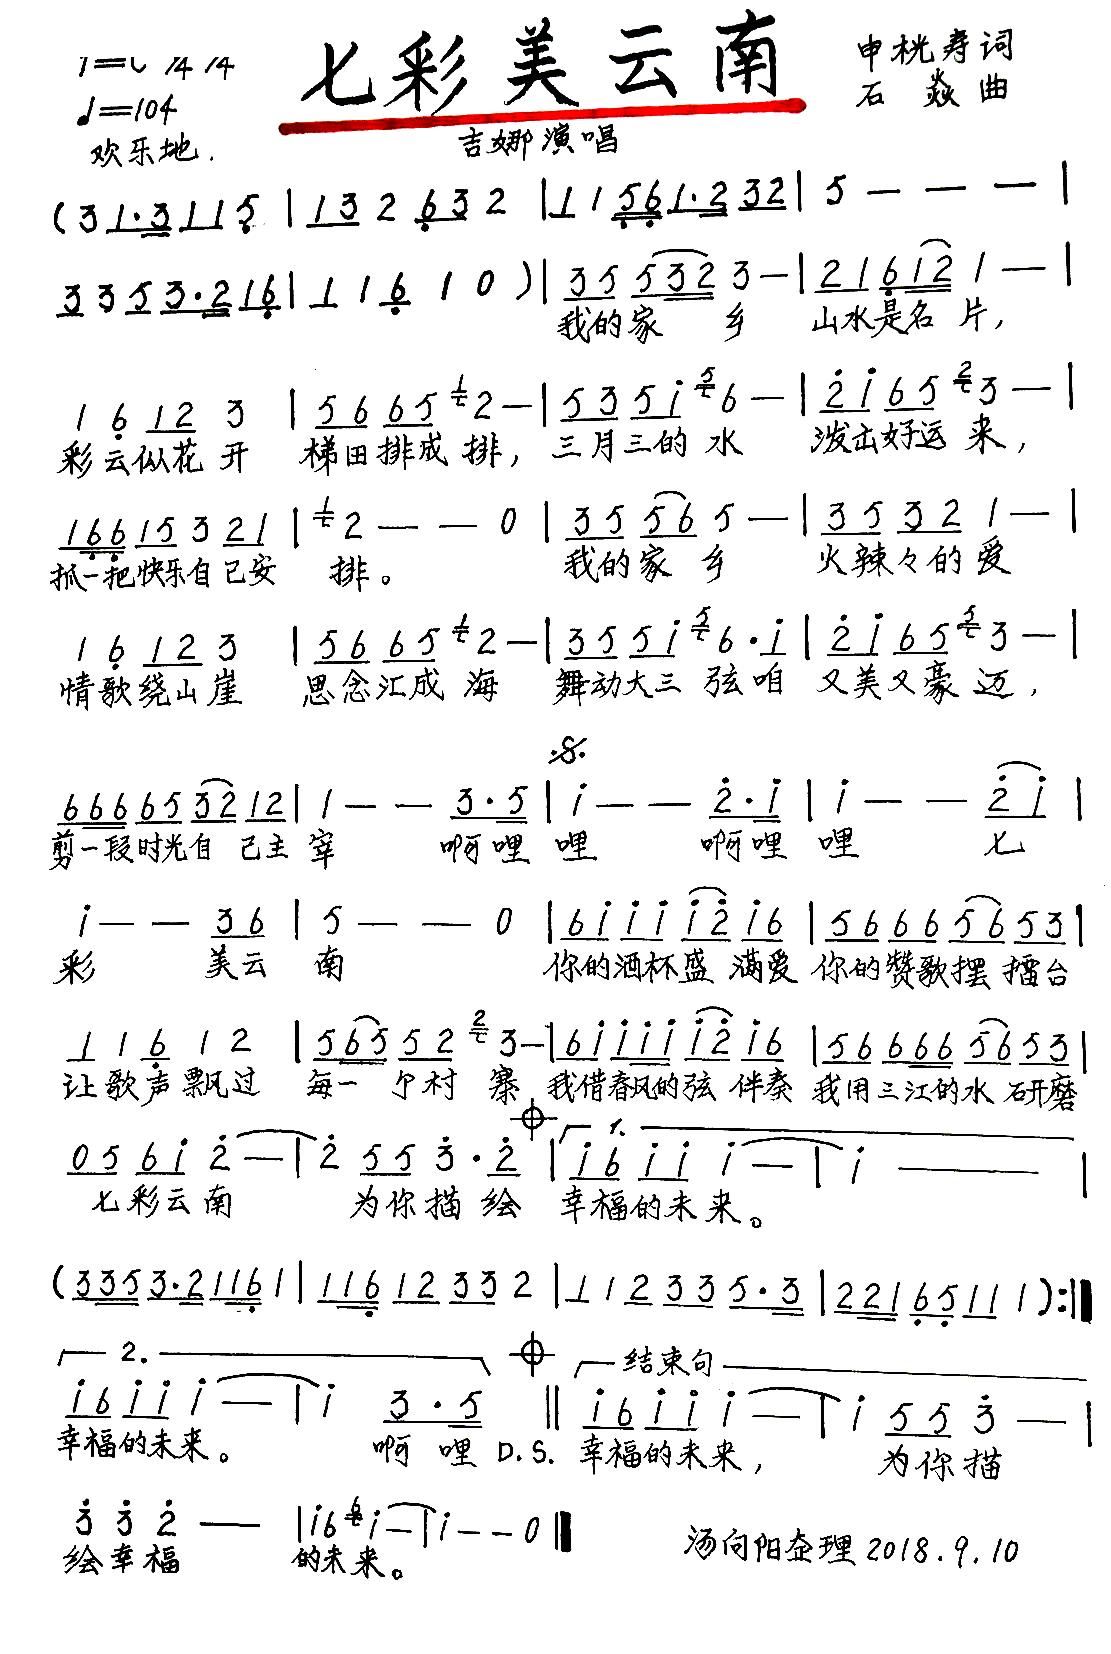 七彩美云南
申桄寿词
石焱曲
♩=104
欢乐地.
吉娜演唱
(3 1·3 1 1 5 | 1 3 2 6 3 2 | 1 1 5 6 1·2 3 2 | 5 — — — |
3 3 5 3·2 1 6 | 1 1 6 1 0 ) | 3 5 5 3 2 3 — | 2 1 6 1 2 1 — |
我的家 乡 山水是名 片,
1 6 1 2 3 | 5 6 6 5 1 2 — | 5 3 5 i 5 6 — | 2 i 6 5 2 3 — |
彩云似花开 梯田排成排, 三月三的水 泼出好运来,
1 6 6 1 5 3 2 1 | 1 2 — — 0 | 3 5 5 6 5 — | 3 5 3 2 1 — |
抓一把快乐自己安 排。 我的家 乡 火辣々的爱
1 6 1 2 3 | 5 6 6 5 1 2 — | 3 5 5 i 5 6 · i | 2 i 6 5 5 3 — |
情歌绕山崖 思念汇成海 舞动大三弦咱 又美又豪迈,
𝄋
6 6 6 6 5 3 2 1 2 | 1 — — 3·5 | i — — 2·i | i — — 2 i |
剪一段时光自己主 宰 啊哩 哩 啊哩 哩 七
i — — 3 6 | 5 — — 0 | 6 i i i i 2 i 6 | 5 6 6 6 5 6 5 3 |
彩 美云 南 你的酒杯盛 满爱 你的赞歌摆 擂台
1 1 6 1 2 | 5 6 5 5 2 2 3 — | 6 i i i i i 2 i 6 | 5 6 6 6 6 5 6 5 3 |
让歌声飘过 每一 个村 寨 我借春风的弦 伴奏 我用三江的水 研磨
1.
0 5 6 i 2 — | 2 5 5 3·2 | i 6 i i i — | i ——— |
七彩云南 为你描绘 幸福的未来。
(3 3 5 3·2 1 1 6 1 | 1 1 6 1 2 3 3 2 | 1 1 2 3 3 5·3 | 2 2 1 6 5 1 1 1 ) :||
2. 结束句
i 6 i i i — | i 3·5 || i 6 i i i — | i 5 5 3 — |
幸福的未来。 啊 哩 D.S. 幸福的未来, 为你描
3 3 2 —— | i 6 6 i — | i — — 0 ||
绘幸福 的未来。
汤向阳企理2018.9.10